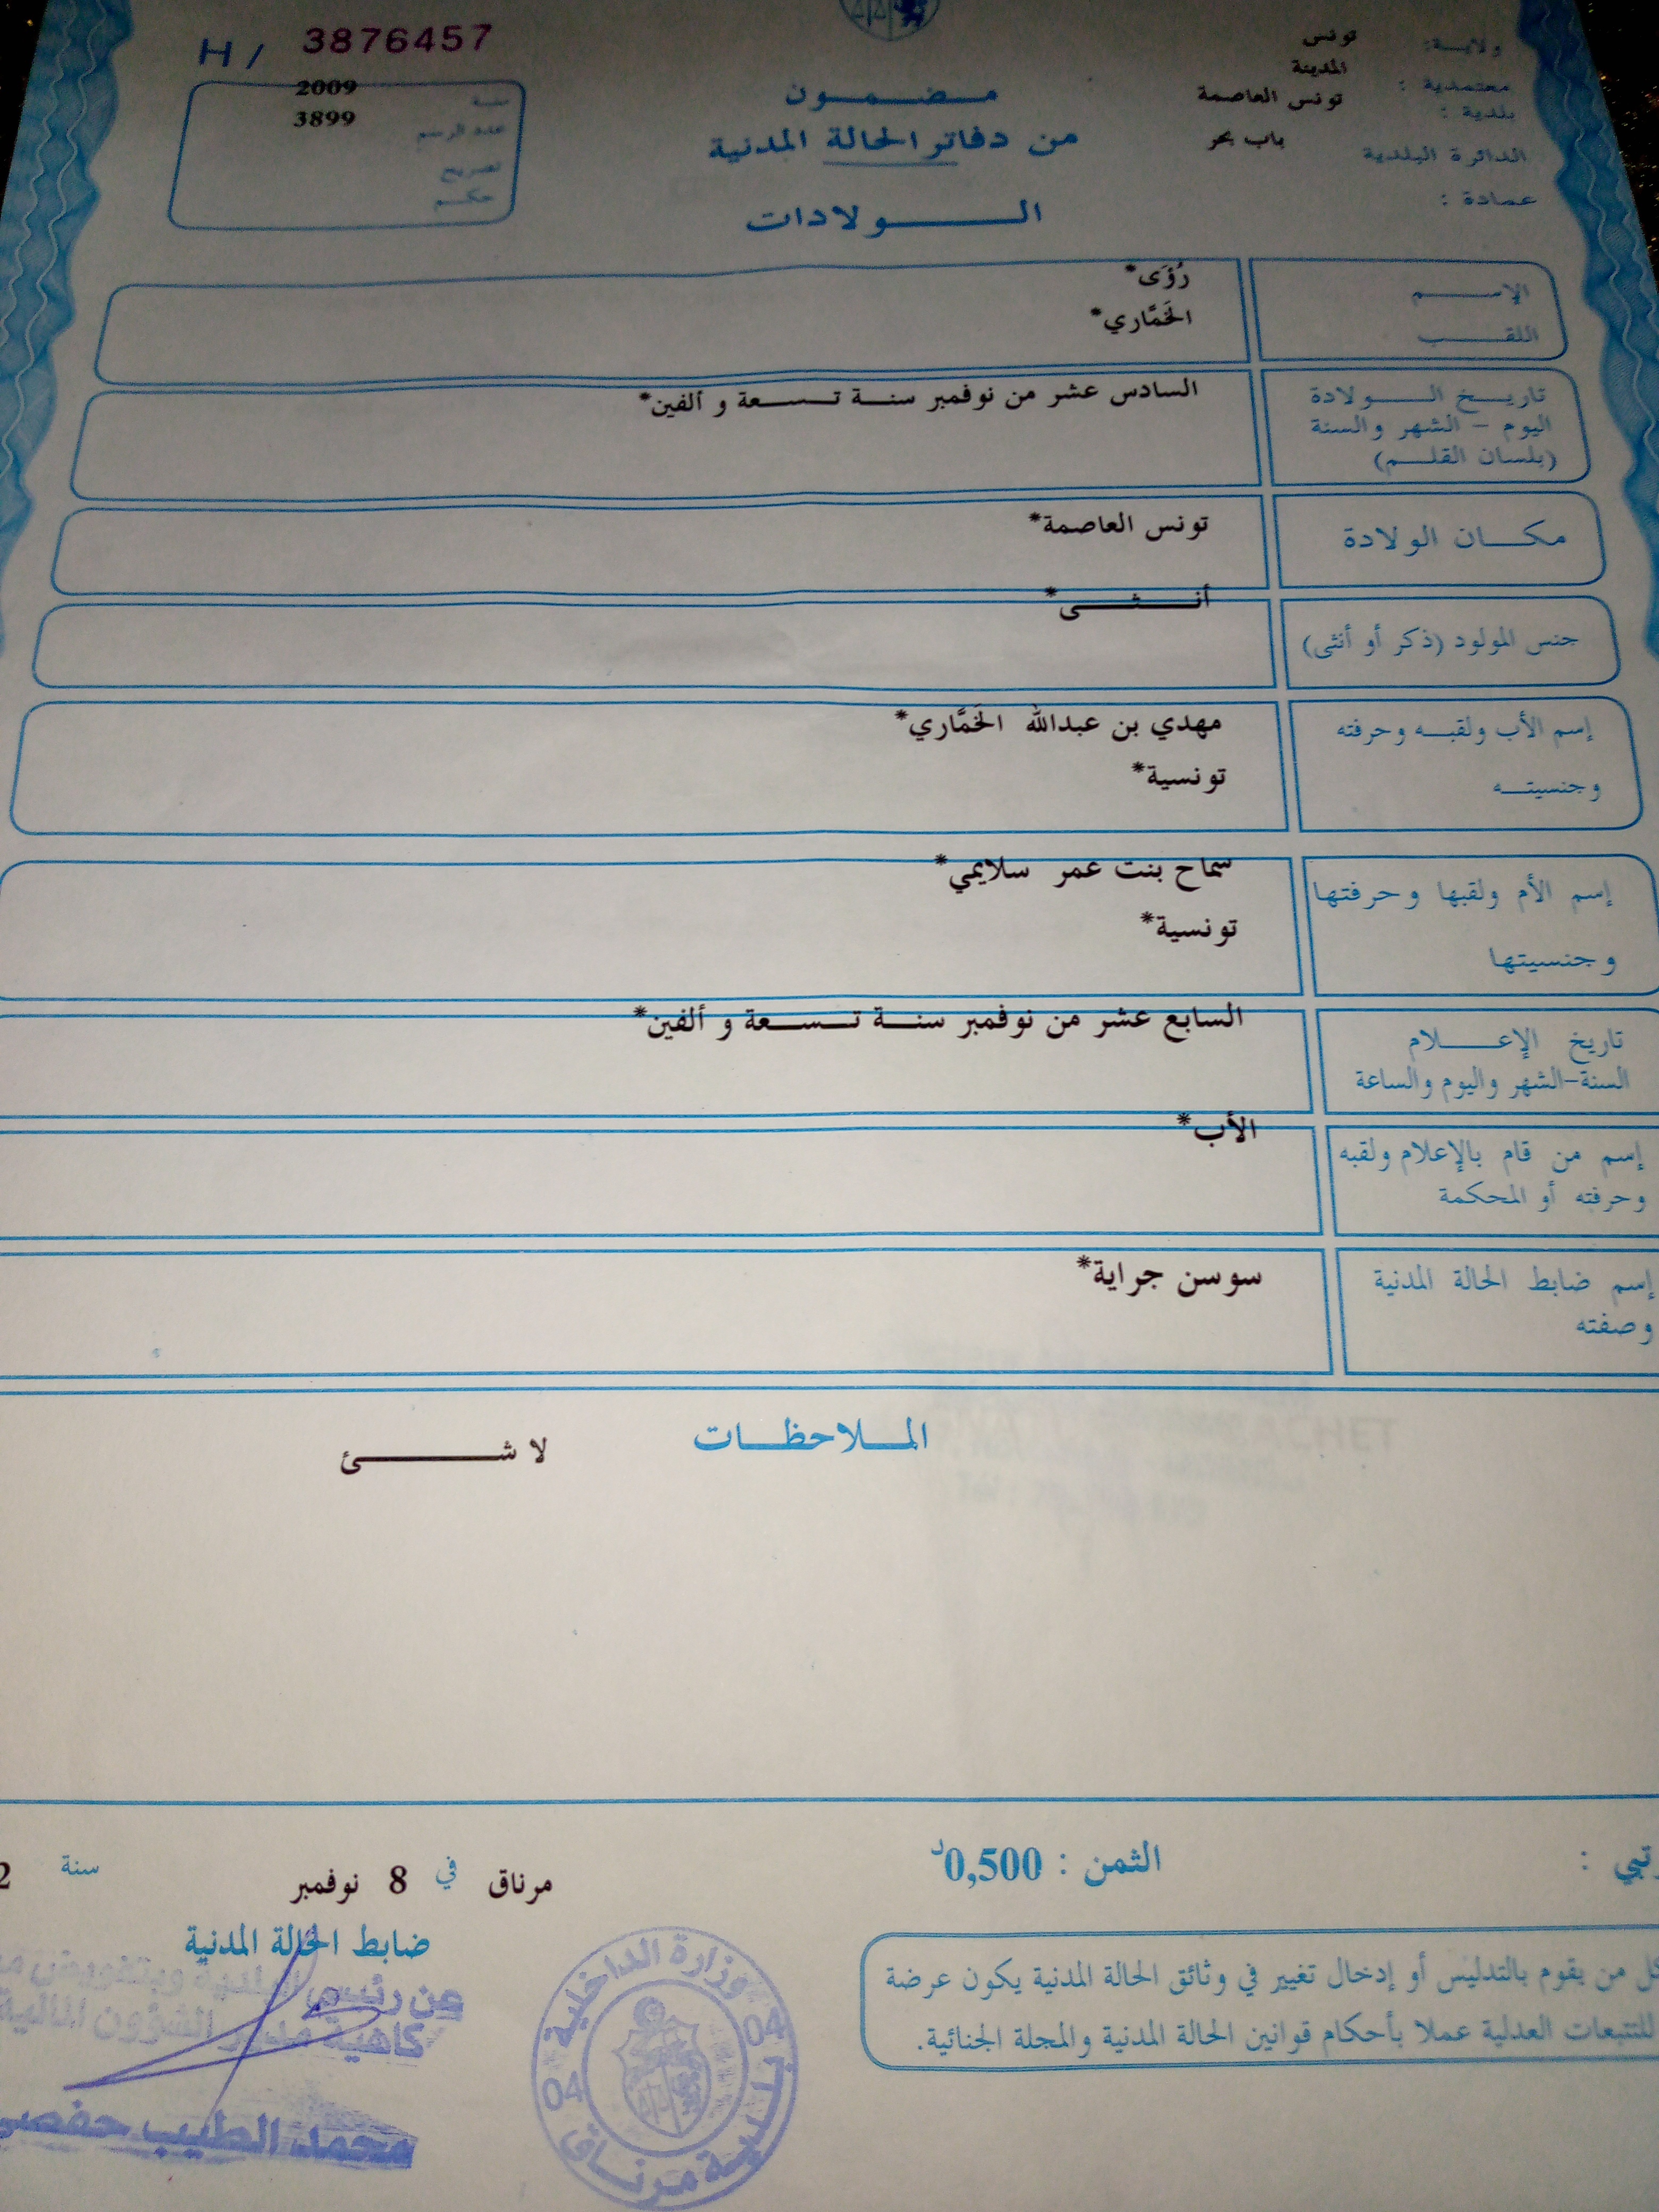 H/ 3876457
ولايـــة: تونس
معتمدية : المدينة
بلدية : تونس العاصمة
الدائرة البلدية باب بحر
عمادة :
مـــضـــمـــون
من دفاتر الحالة المدنية
الـــــولادات
سنة 2009
عدد الرسم 3899
تصريح
حكـم
الإســـــم رُؤَى*
اللقـــــب الخَمَّاري*
تاريـــخ الـــــولادة السادس عشر من نوفمبر سنـة تـسـعة و ألفين*
اليوم - الشهر والسنة
(بلسان القلـــم)
مكـــان الولادة تونس العاصمة*
جنس المولود (ذكر أو أنثى) أنـــثـــى*
إسم الأب ولقبـه وحرفته مهدي بن عبدالله الخَمَّاري*
وجنسيتـه تونسية*
إسم الأم ولقبها وحرفتها سماح بنت عمر سلايمي*
وجنسيتها تونسية*
تاريخ الإعـــــلام السابع عشر من نوفمبر سنـة تـسـعة و ألفين*
السنة-الشهر واليوم والساعة
إسم من قام بالإعلام ولقبه الأب*
وحرفته أو المحكمة
إسم ضابط الحالة المدنية سوسن جراية*
وصفته
المـــلاحظـــات
لا شـــــئ
الثمن : 0,500د
مرناق في 8 نوفمبر سنة 2
ضابط الحالة المدنية
كل من يقوم بالتدليس أو إدخال تغيير في وثائق الحالة المدنية يكون عرضة
للتتبعات العدلية عملا بأحكام قوانين الحالة المدنية والمجلة الجنائية.
عن رئيس البلدية وبتفويض
كاهية مدير الشؤون المالية
محمد الطيب حفصي
وزارة الداخلية
04 04
بلدية مرناق